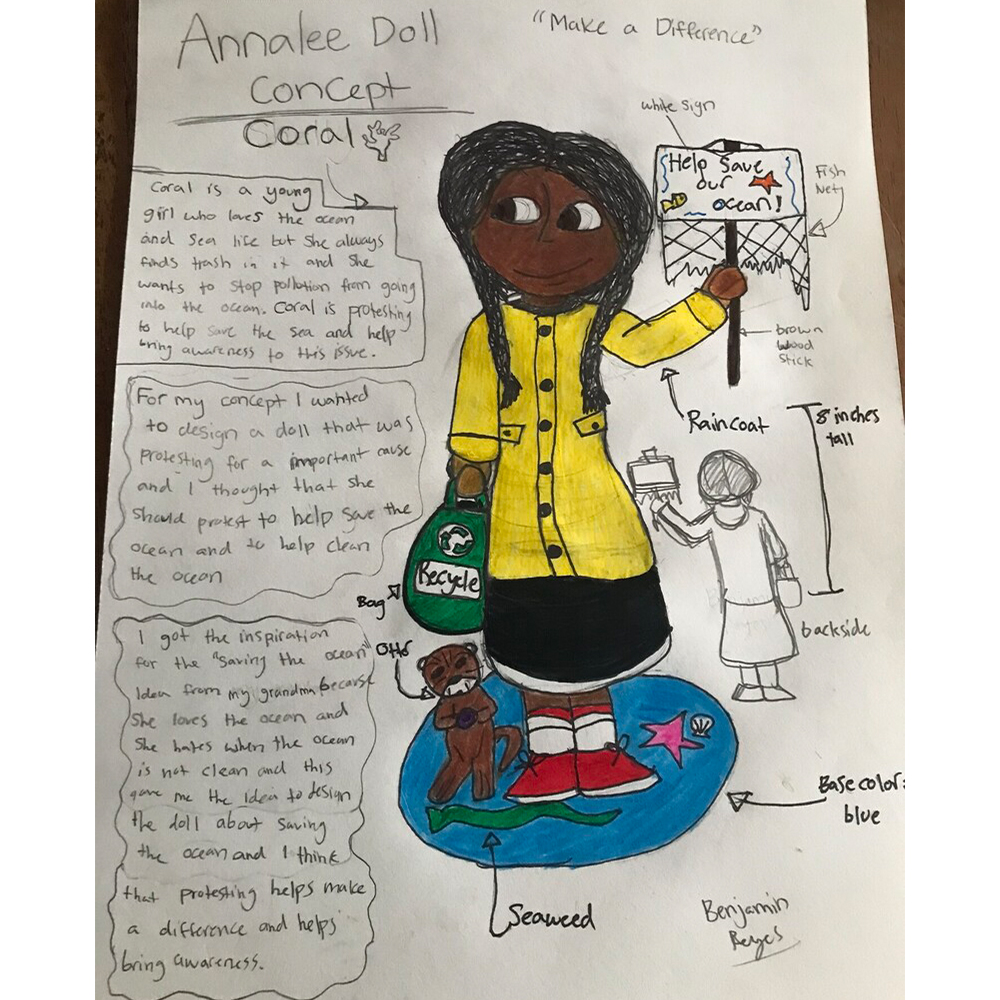 Annalee Doll
Concept
Coral
"Make a Difference"
Coral is a young
girl who loves the ocean
and sea life but she always
finds trash in it and she
wants to stop pollution from going
into the ocean. Coral is protesting
to help save the sea and help
bring awareness to this issue.
For my concept I wanted
to design a doll that was
protesting for a important cause
and I thought that she
should protest to help save the
ocean and to help clean
the ocean
I got the inspiration
for the "saving the ocean"
Idea from my grandma because
she loves the ocean and
she hates when the ocean
is not clean and this
gave me the Idea to design
the doll about saving
the ocean and I think
that protesting helps make
a difference and helps
bring awareness.
white sign
Help Save
our
ocean!
Fish
Net
brown
wood
stick
Raincoat
8 inches
tall
backside
Recycle
Bag
Otter
Base color:
blue
Seaweed
Benjamin
Reyes